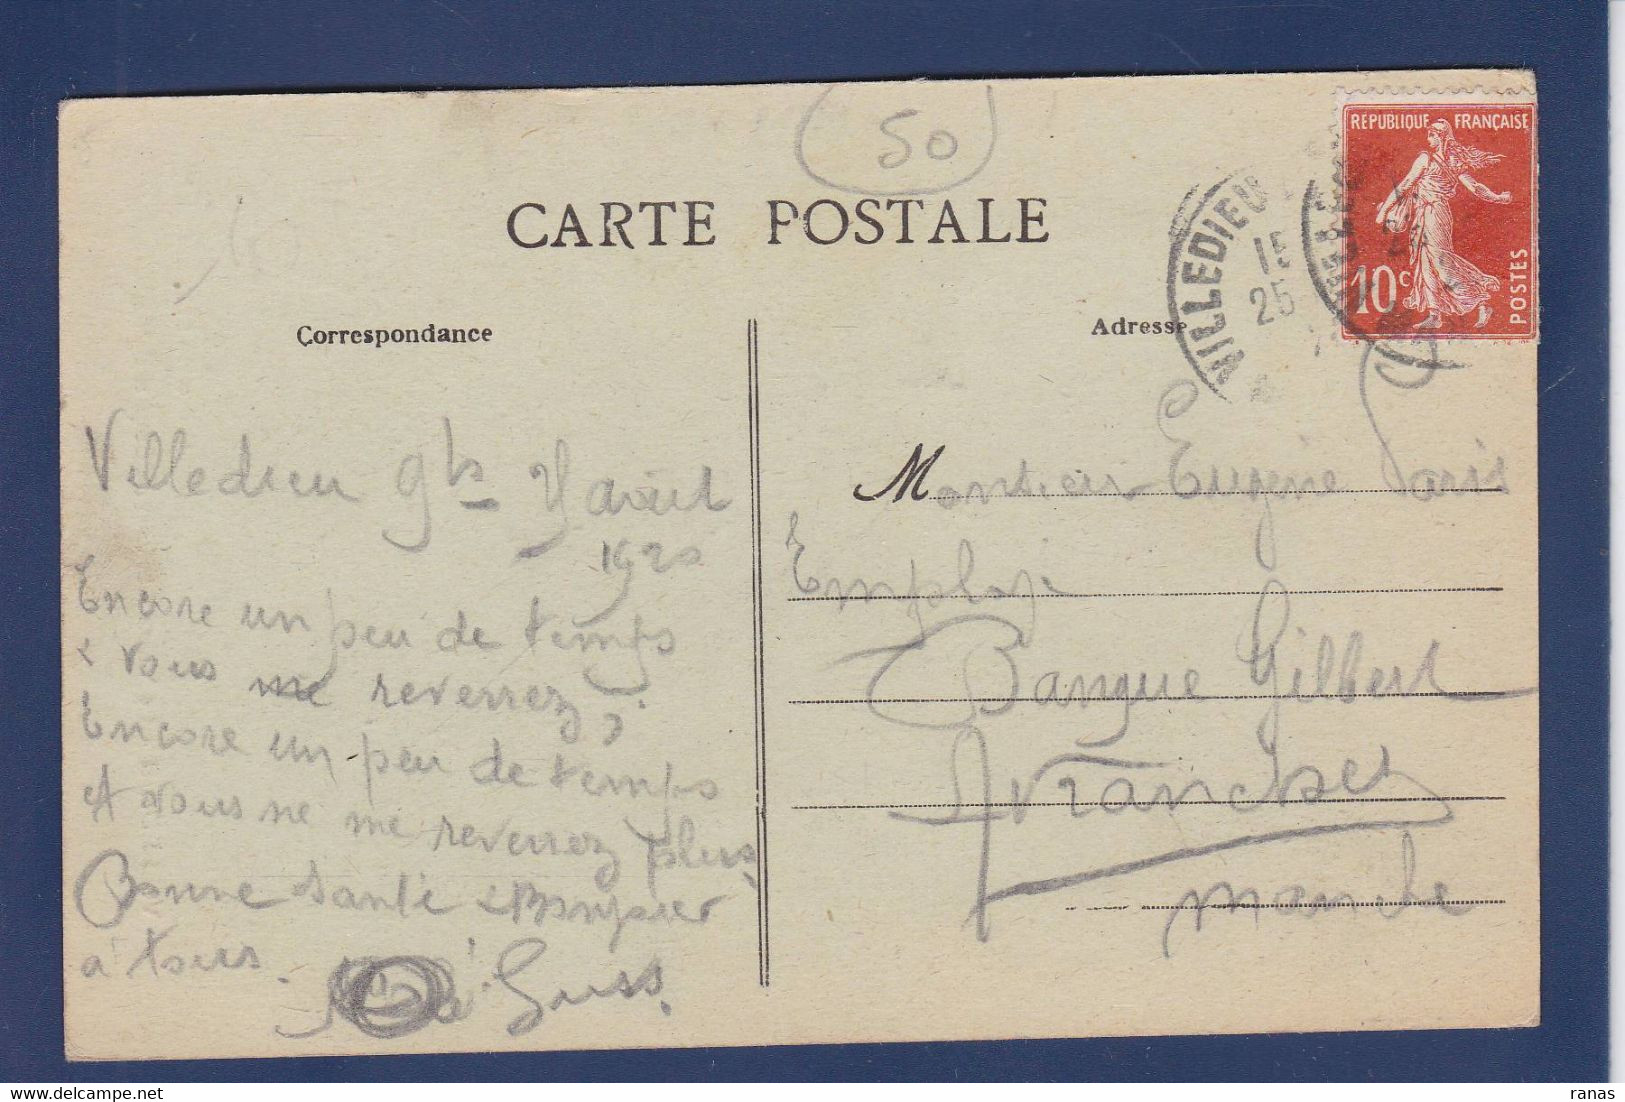 50
CARTE POSTALE
REPUBLIQUE FRANÇAISE
10c
POSTES
VILLEDIEU
15
25
Correspondance
Adresse
Villedieu
1920
Encore un peu de temps
& vous me reverrez ;
Encore un peu de temps
et vous ne me reverrez plus
Bonne santé & Bonjour
à tous.
Monsieur Eugène Paris
Employé
Banque Gilbert
Avranches
Manche
ranas